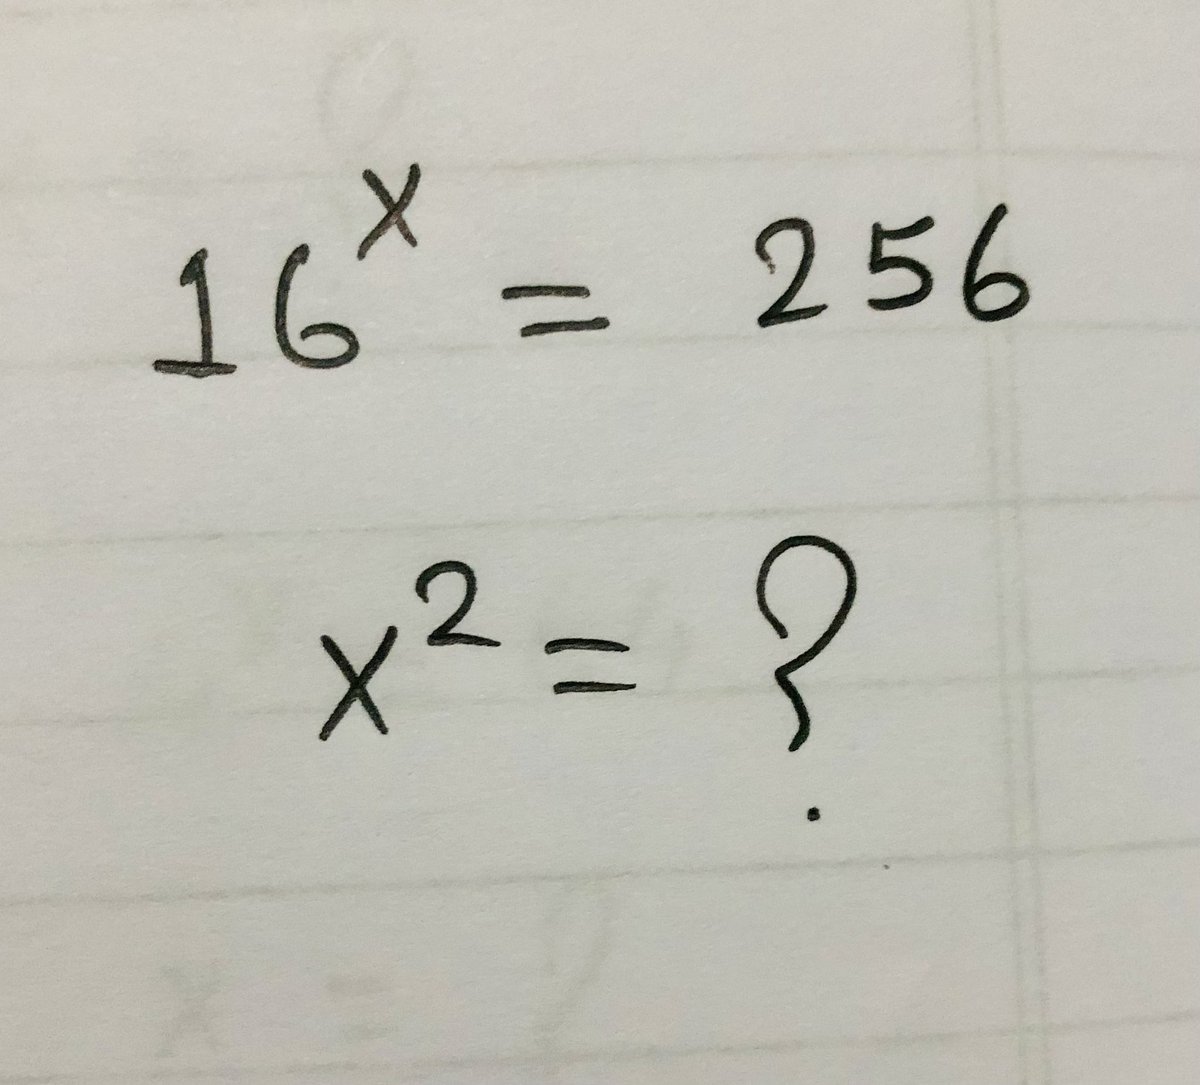 16ˣ = 256
x² = ?